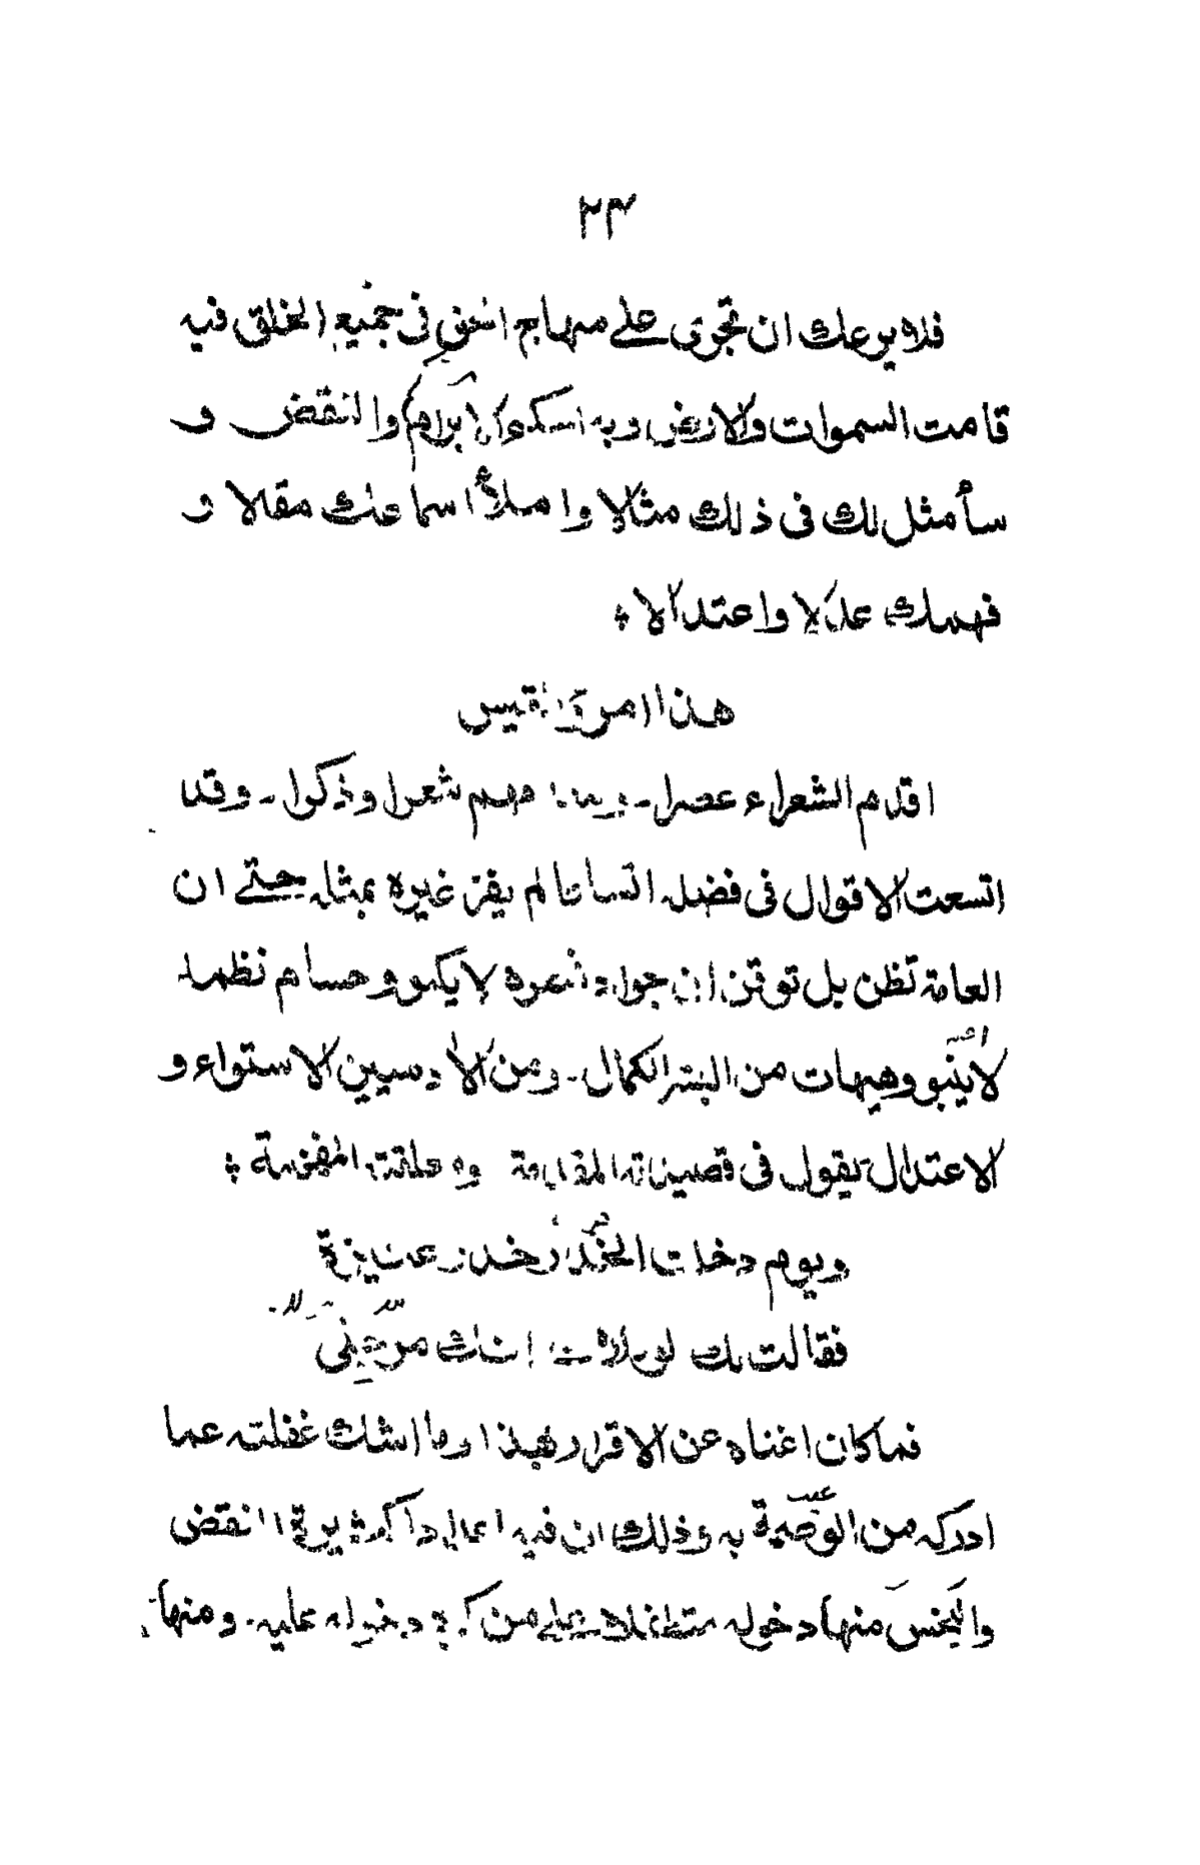 ٢٣
فلا يرعك ان تجرى على منهاج الحق فى جميع الخلق فبه
قامت السموات والارض وبه الابرام والنقض و
سأمثل لك فى ذلك مثالا واملأ اسماعك مقالا و
فهمك عدلا واعتدالا
هذا امرؤ القيس
اقدم الشعراء عصرا ـ شعرا وذكرا ـ وقد
اتسعت الاقوال فى فضله اتساعا لم يفز غيره بمثله حتى ان
العامة تظن بل توقن ان جواد شعره لا يكبو وحسام نظمه
لا ينبو وهيهات من البشر الكمال ـ ومن الآدميين الاستواء و
الاعتدال يقول فى قصيدته المقدمة ومعلقته المفخمة
ويوم دخلت الخدر خدر عنيزة
فقالت لك الويلات إنك مرجلى
فما كان اغناه عن الاقرار بهذا وما اشك غفلته عما
ادركه من الوصمة به وذلك ان فيه اعدادا كثيرة النقض
والبخس منها دخوله متطفلا على من كره دخوله عليه ـ ومنها